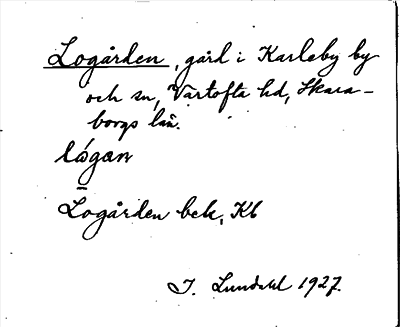 Logården, gård i Karleby by
och sn, Vartofta hd, Skara-
borgs län.
lágan
=
Logården bek, Kb
I. Lundahl 1927.